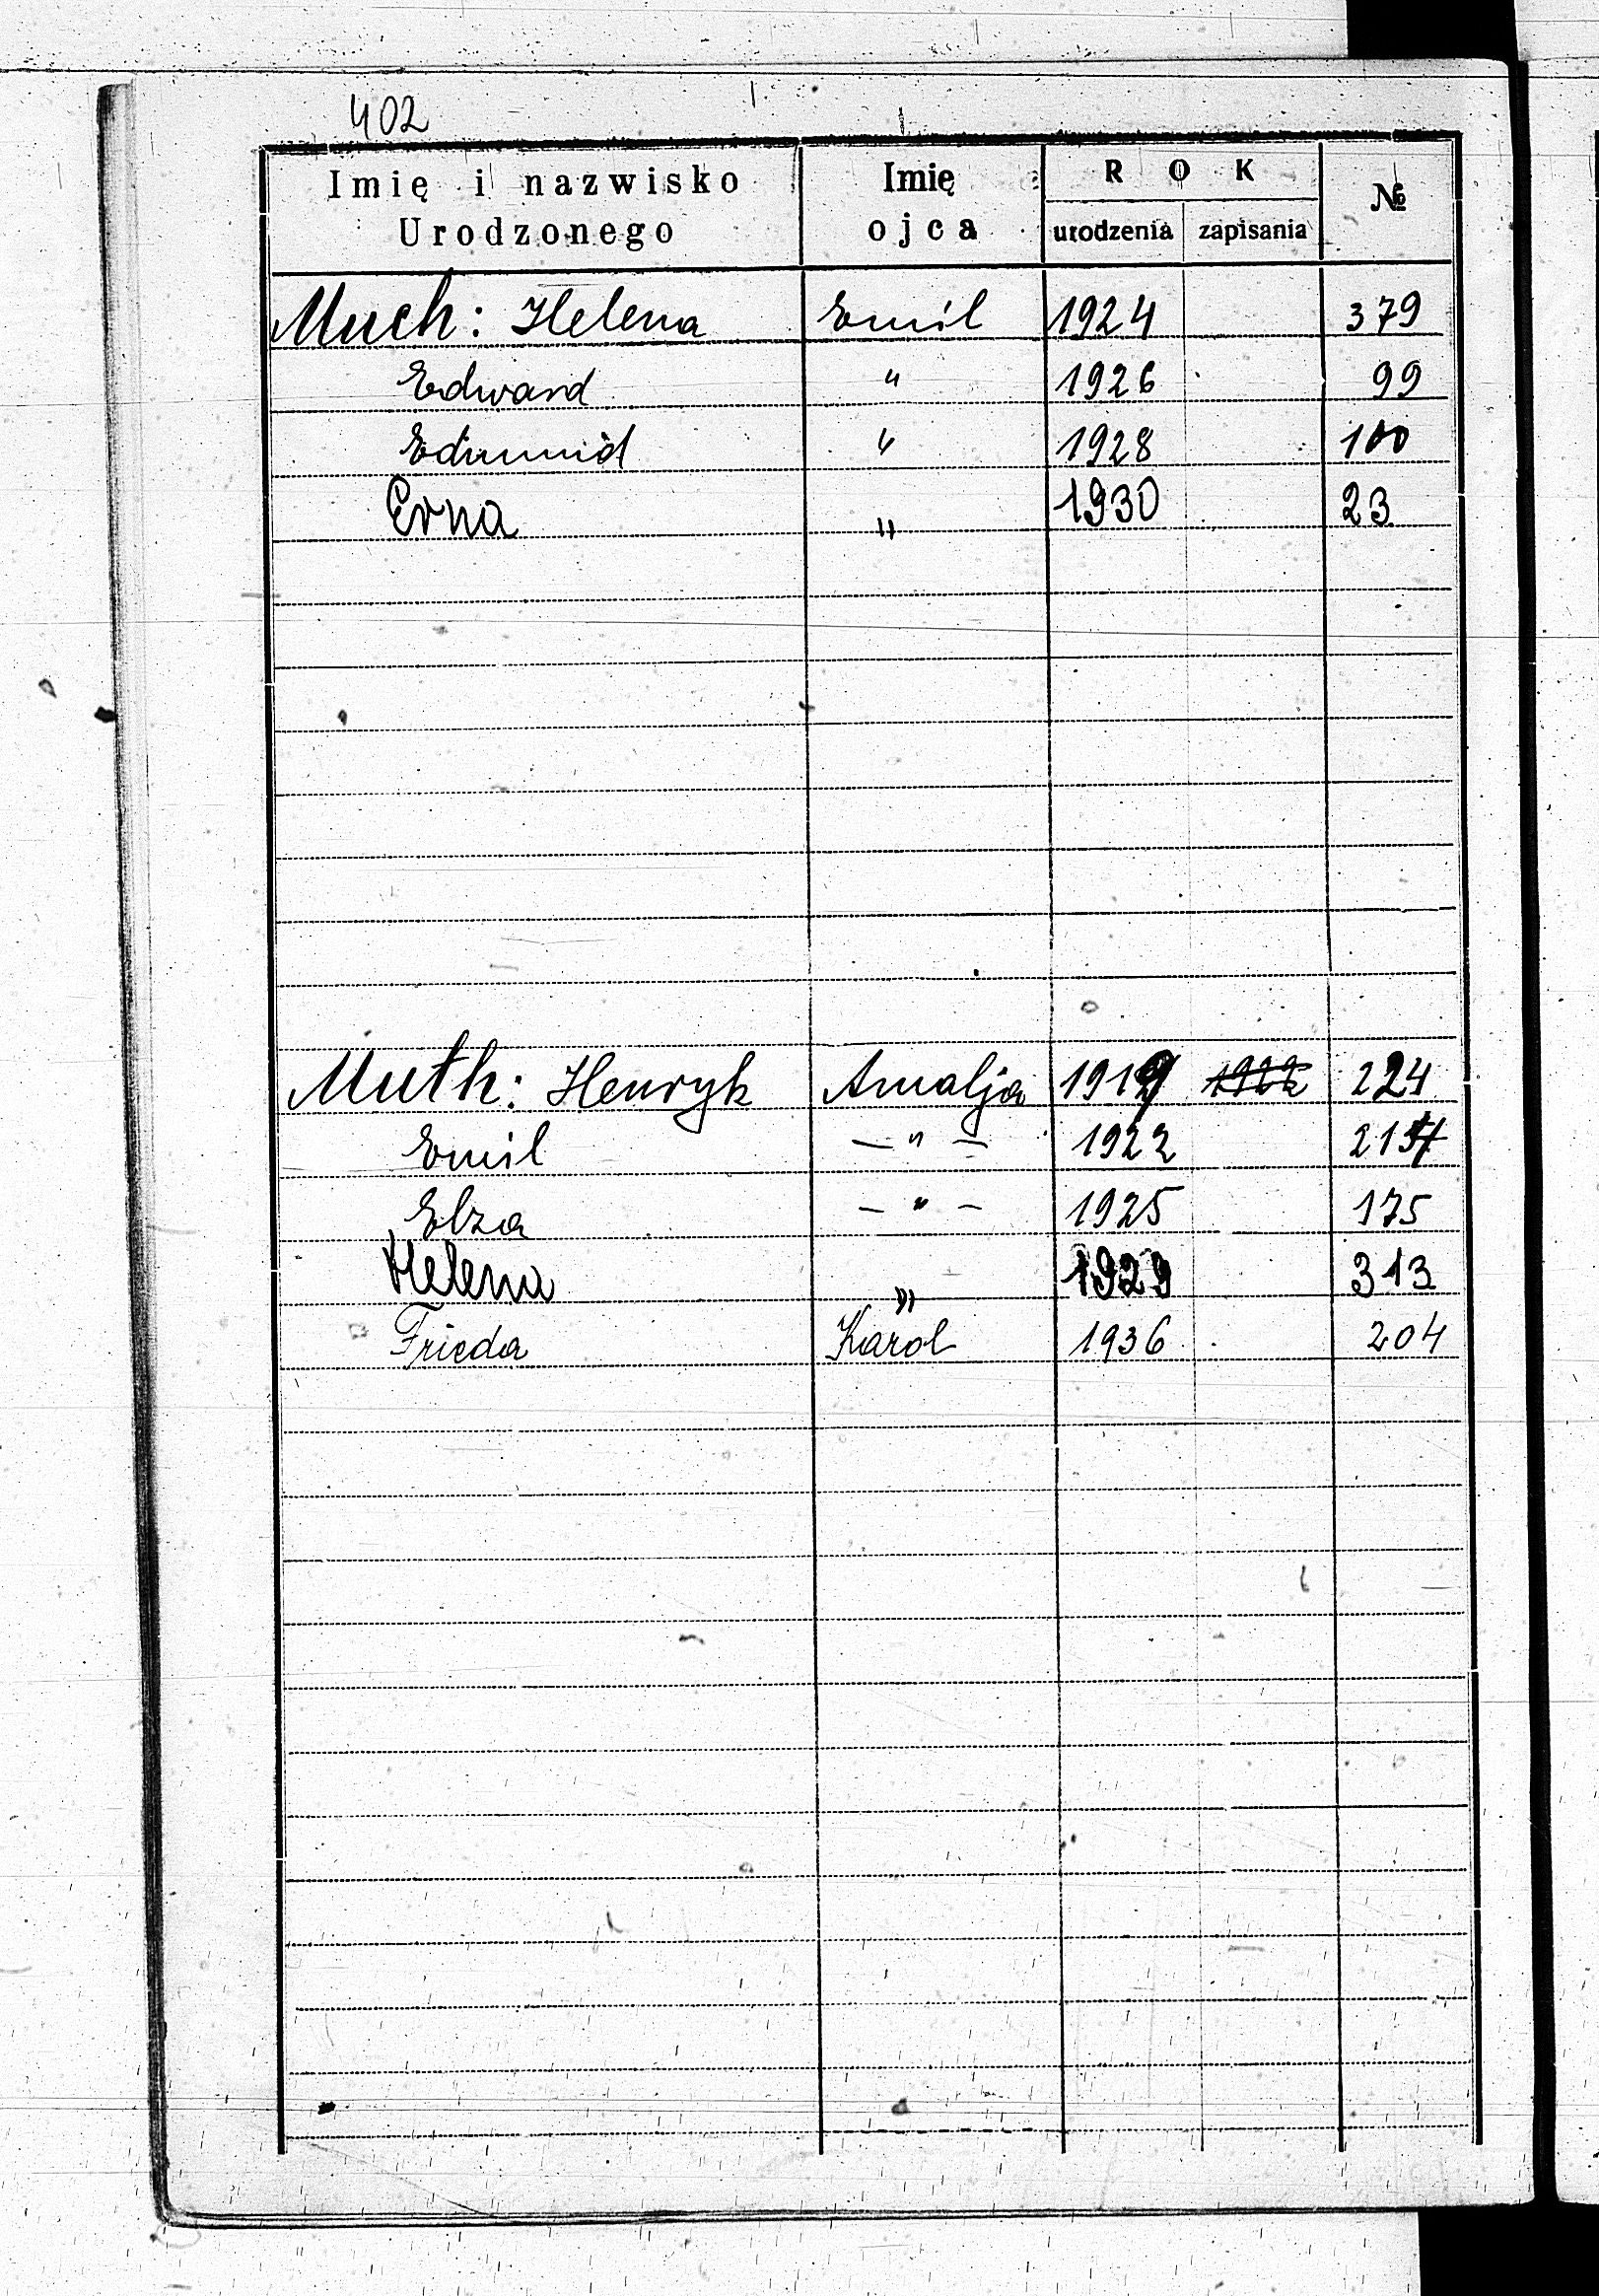 402
Imię i nazwisko Urodzonego Imię ojca R O K №
urodzenia zapisania
Much: Helena Emil 1924 379
Edward " 1926 99
Edmund " 1928 100
Erna " 1930 23
Muth: Henryk Amalja 1919 1922 224
Emil — " — 1922
Elza — " — 1925 175
Helena " 1929 313
Frieda Karol 1936 204